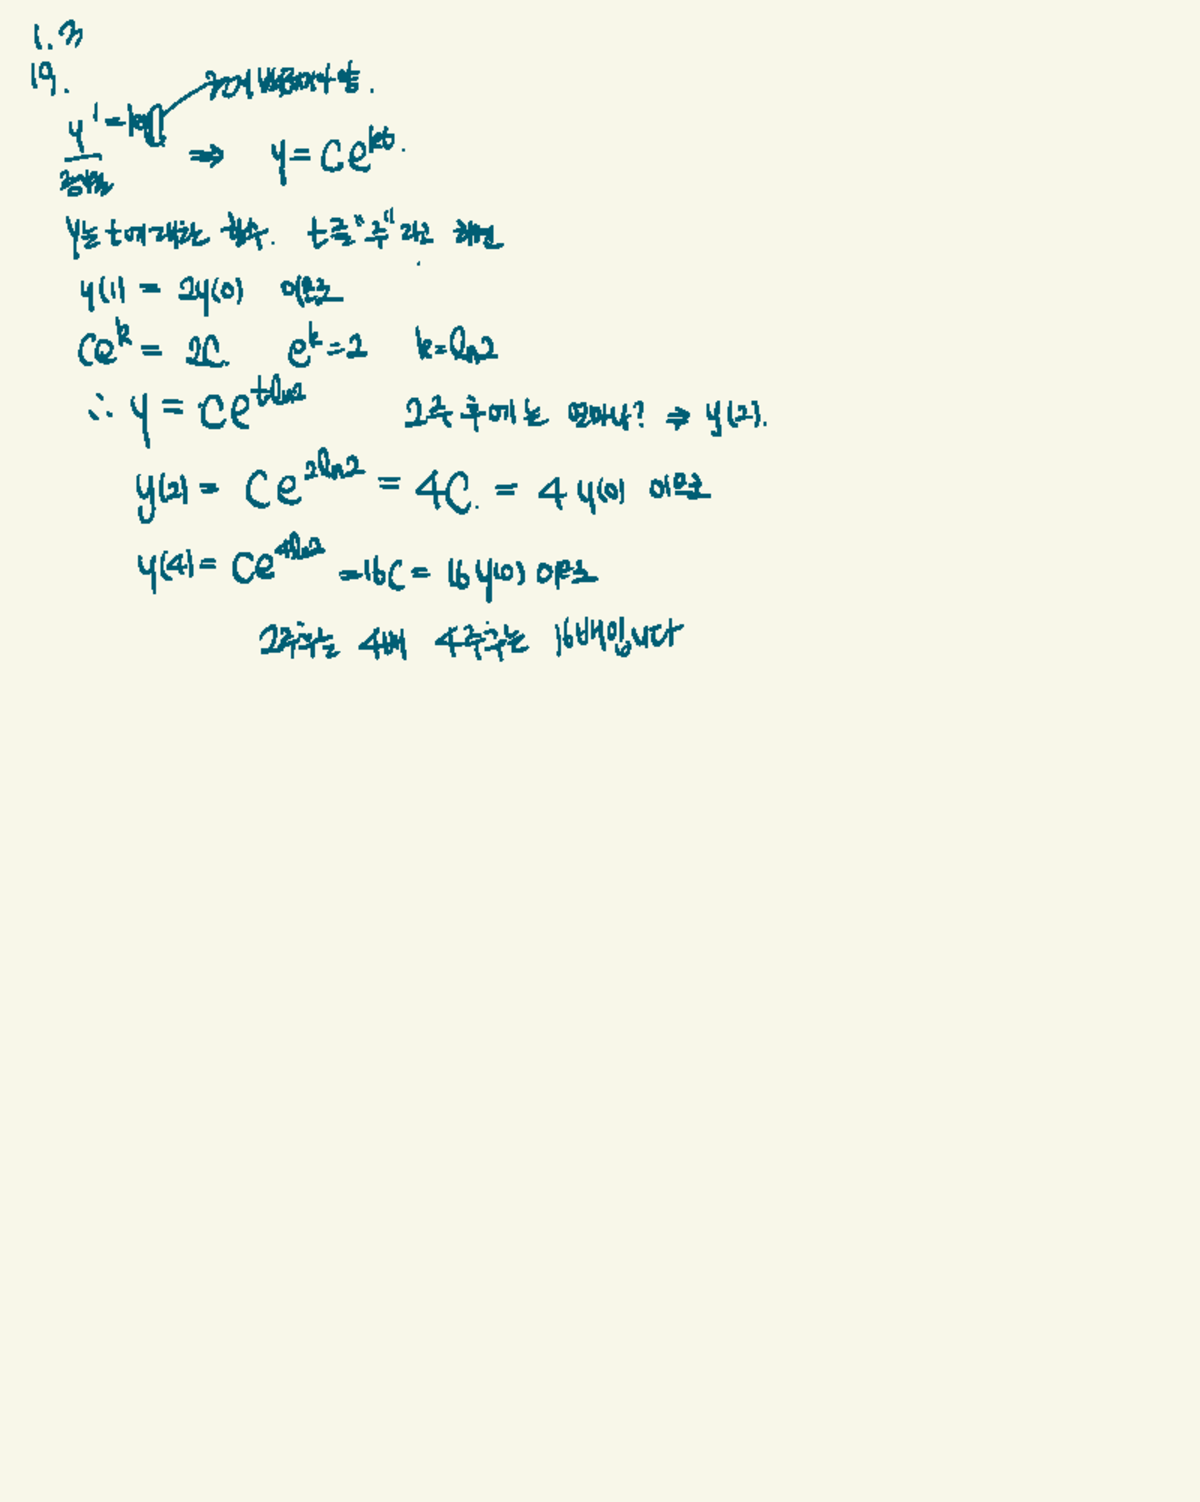 1.3
19.
y' = ky
⇒ y = Ce^{kt}.
y는 t에 대한 함수. t를 "주"라고 하면
y(1) = 2y(0) 이므로
Ce^k = 2C. e^k = 2 k = ln2
∴ y = Ce^{tln2} 2주 후에는 얼마나? ⇒ y(2).
y(2) = Ce^{2ln2} = 4C. = 4y(0) 이므로
y(4) = Ce^{4ln2} = 16C = 16y(0) 이므로
2주후는 4배 4주후는 16배입니다